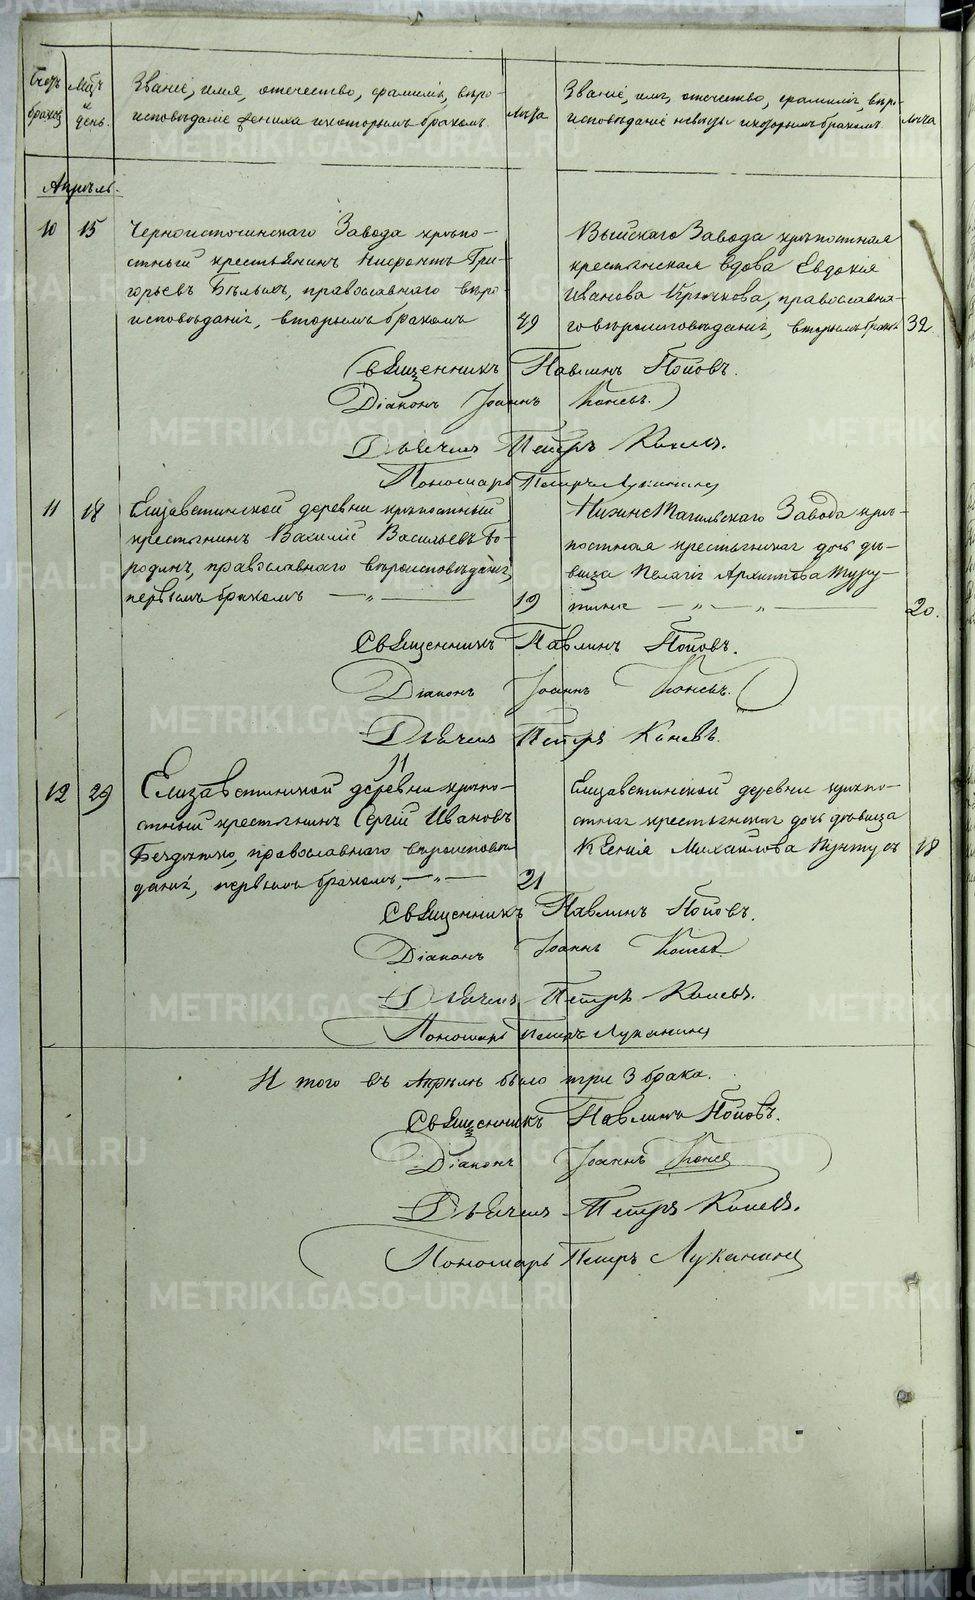 Счетъ браковъ
Мѣц. и день.
Званіе, имя, отечество, фамилія, вѣро-
исповѣданіе жениха и которымъ бракомъ.
Лѣта
Званіе, имя, отечество, фамилія, вѣро-
исповѣданіе невѣсты и которымъ бракомъ.
Лѣта
Апрѣль.
10 15 Черноисточинскаго Завода крѣпо-
стный крестьянинъ Нифонтъ Гри-
горьевъ Бѣлыхъ, православнаго вѣро-
исповѣданія, вторымъ бракомъ 49
Выйскаго Завода крѣпостная
крестьянская вдова Евдокія
Иванова Крючкова, православна-
го вѣроисповѣданія, вторымъ бракомъ 32
Священникъ Павлинъ Поповъ.
Діаконъ Іоаннъ
Дьячекъ Петръ Каневъ.
Пономарь Петръ Луканинъ
11 18 Елизаветинской деревни крѣпостный
крестьянинъ Василій Васильевъ Бо-
родинъ, православнаго вѣроисповѣданія,
первымъ бракомъ — „ — 19
Нижне Тагильскаго Завода крѣ-
постная крестьянская дочь дѣ-
вица Пелагія Архиппова
— „ — „ — 20.
Священникъ Павлинъ Поповъ.
Діаконъ Іоаннъ
Дьячекъ Петръ Каневъ.
11
12 29 Елизаветинской деревни крѣпо-
стный крестьянинъ Сергій Ивановъ
православнаго вѣроисповѣ-
данія, первымъ бракомъ, — „ — 21
Елизаветинской деревни крѣпо-
стная крестьянская дочь дѣвица
Ксенія Михайлова 18
Священникъ Павлинъ Поповъ.
Діаконъ Іоаннъ
Дьячекъ Петръ Каневъ.
Пономарь Петръ Луканинъ
И того въ Апрѣлѣ было три 3 брака.
Священникъ Павлинъ Поповъ.
Діаконъ Іоаннъ
Дьячекъ Петръ Каневъ.
Пономарь Петръ Луканинъ
METRIKI.GASO-URAL.RU